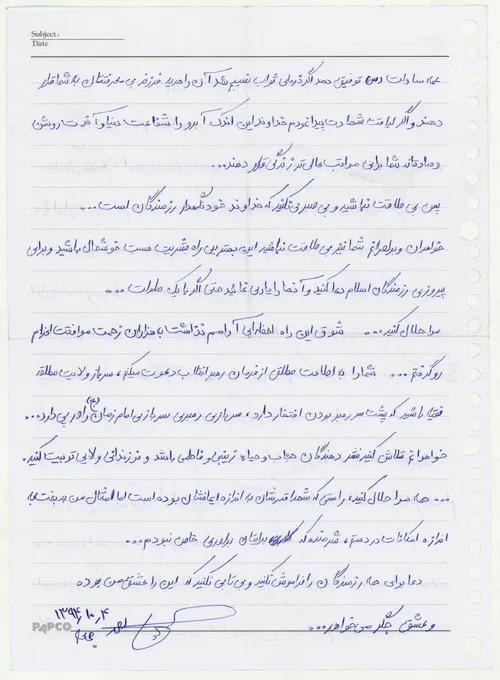 Subject:
Date
توفیق دهد اگر قدری ثواب نصیبم شد آن را هدیه فرزند بی معرفتتان به شما قرار
دهند و اگر لیاقت شهادت پیدا کردم خداوند این اندک آبرو را شفاعت دنیا و آخرت روشن
و صادقانه شما برای مراتب عالی تر زندگی قرار دهند...
پس بی طاقت نباشید و بی صبری نکنید که خداوند خود نگهدار رزمندگان است...
خواهران و برادرانم شما نیز بی طاقت نباشید این بهترین راه بشریت هست خوشحال باشید و برای
پیروزی رزمندگان اسلام دعا کنید و آنها را یاری نمائید حتی اگر با یک صلوات...
مرا حلال کنید... شوق این راه لحظه‌ایی آرامم نگذاشت به هزاران زحمت موافقت اعزام
رو گرفتم... شما را به اطاعت مطلق از فرمان رهبر انقلاب دعوت میکنم، سرباز ولایت مطلقه
فقیه باشید که پشت سر رهبر بودن افتخار دارد، سربازی رهبری سربازی امام زمان (عج) را در پی دارد...
خواهرانم تلاش کنید نشر دهندگان حجاب و حیاء زینبی و فاطمی باشند و فرزندانی ولایی تربیت کنید.
... همه مرا حلال کنید، راستی که شهدا قدرتشان به اندازه ایمانشان بوده است اما امثال من بدبخت به
اندازه امکانات در دستم، شرمنده که برایتان برادری خاص نبودم...
دعا برای همه رزمندگان را فراموش نکنید و بی تابی نکنید که این راه عشق من بوده
و عشق جگر می‌خواهد...
۱۳۹۴,۱۰,۴
PAPCO